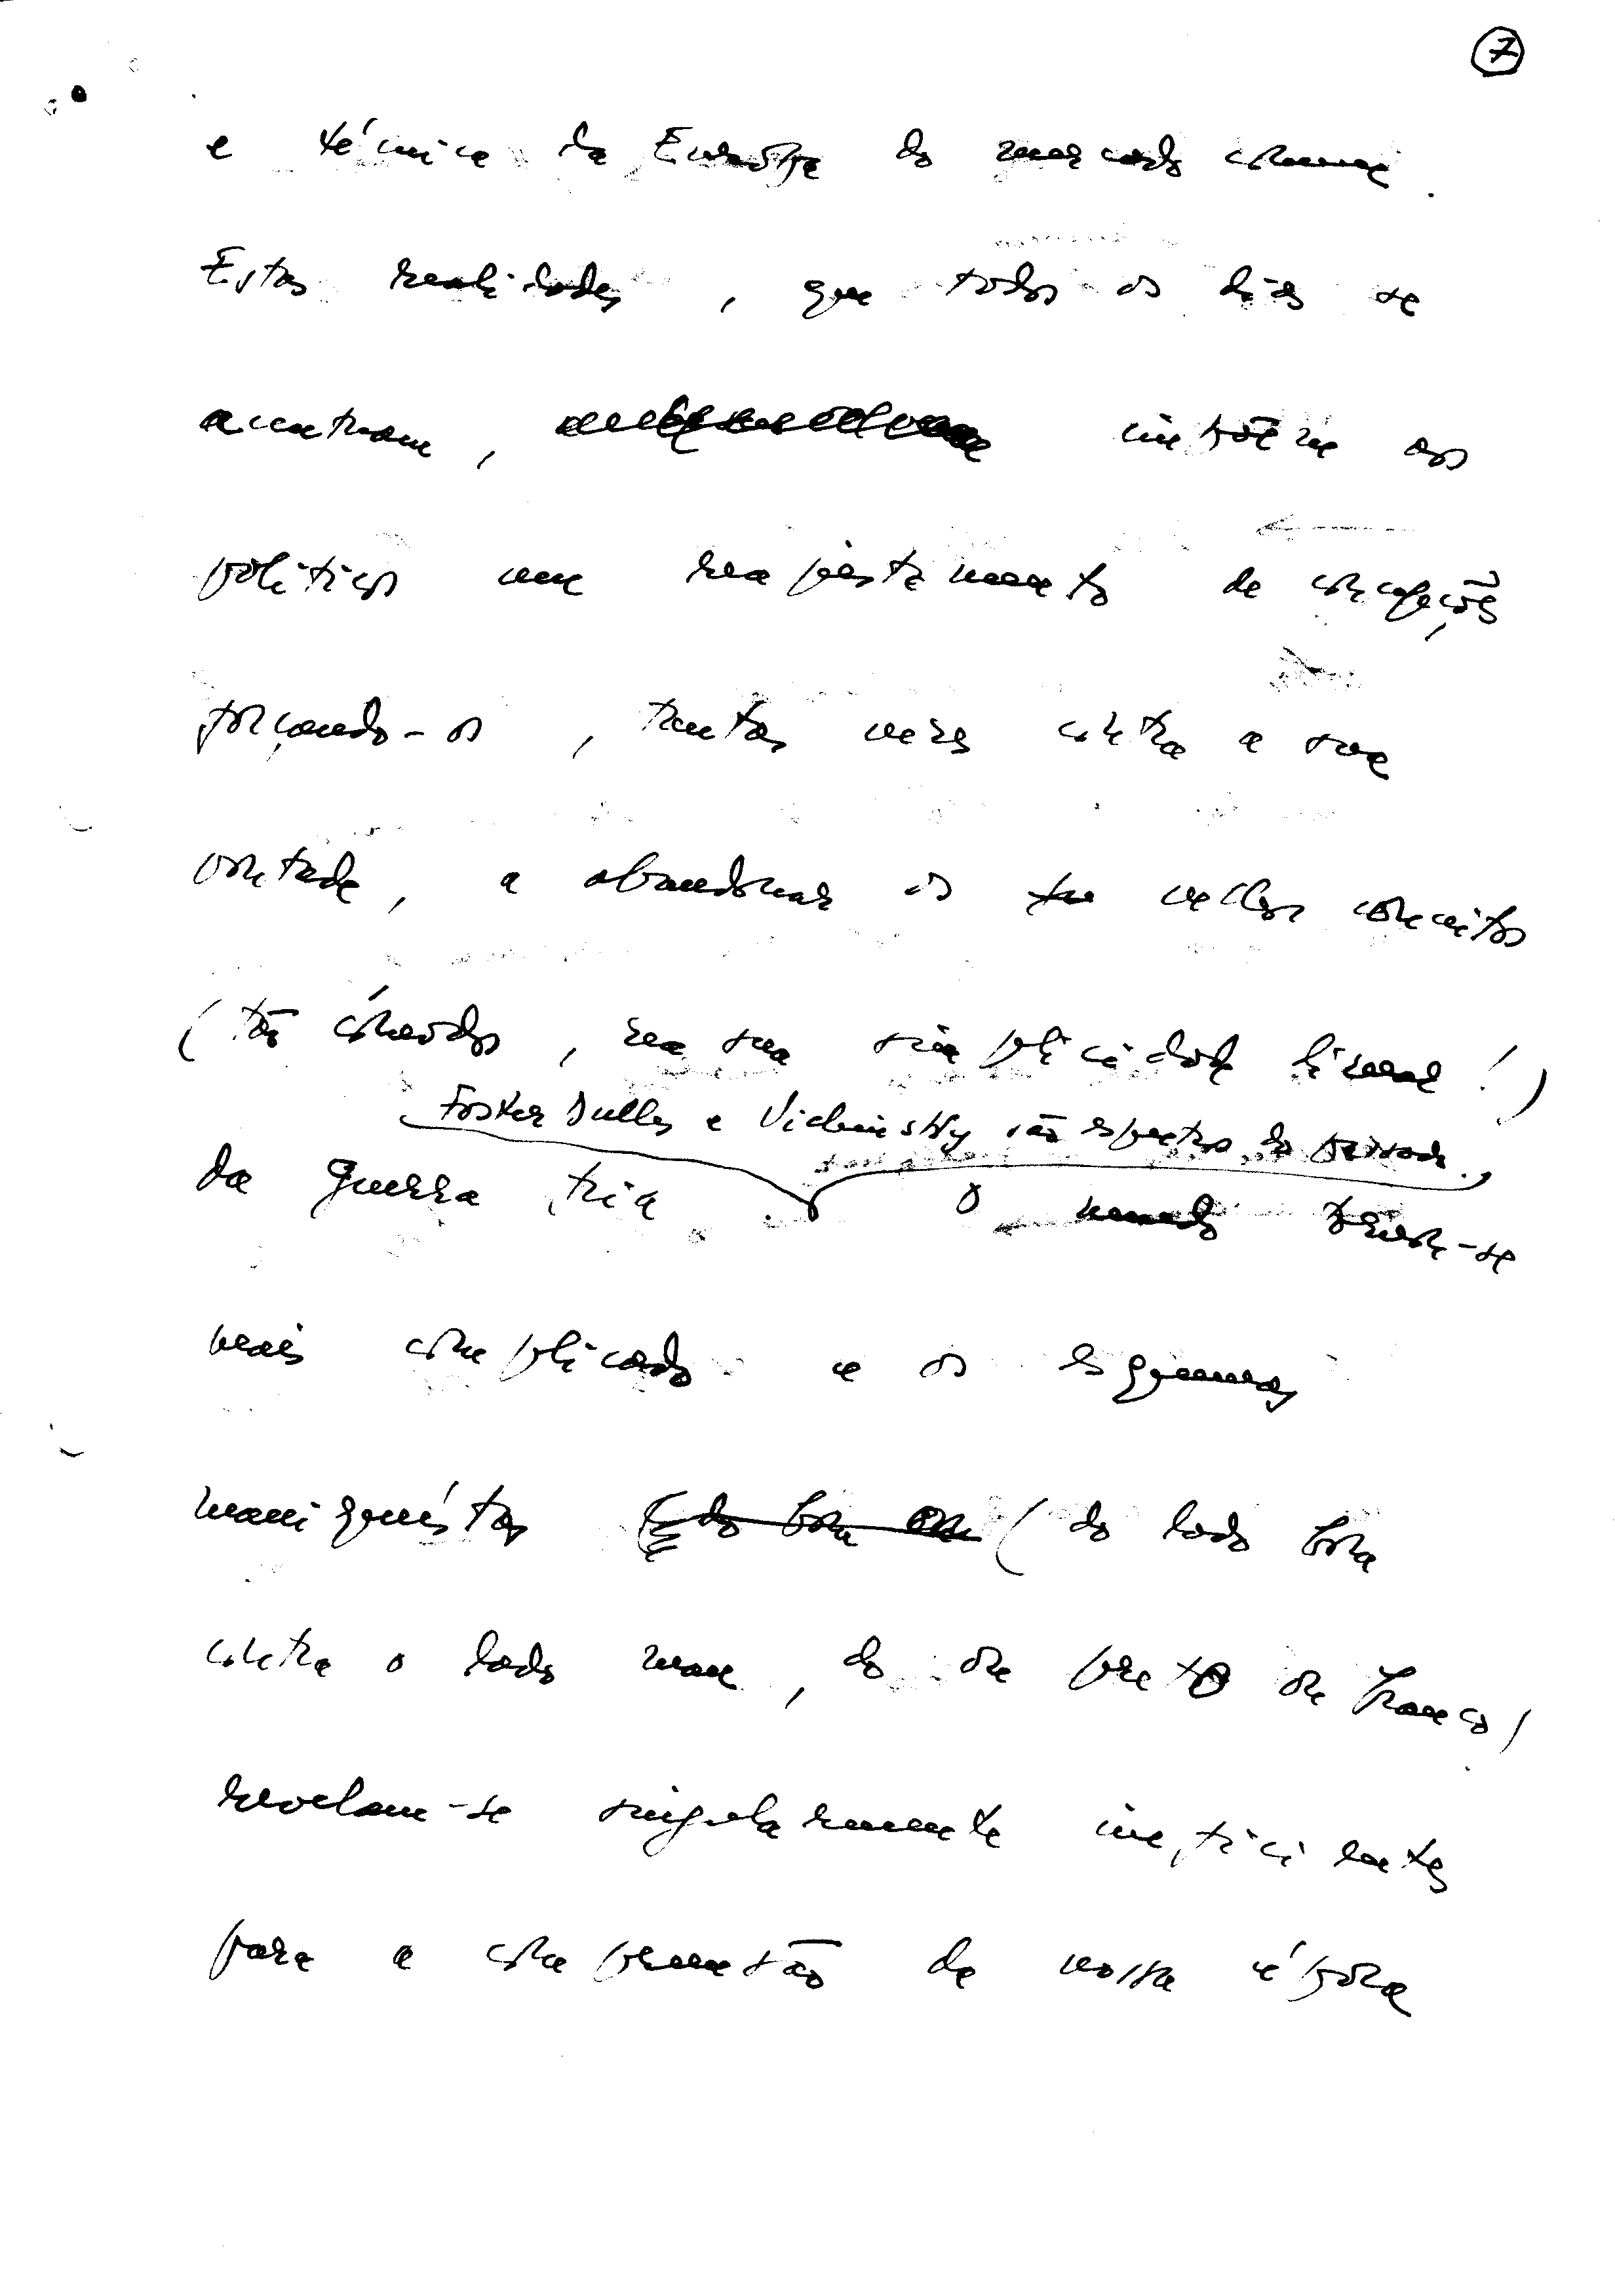 7
e técnica da Europa do mercado comum.
Estas realidades, que todos os dias se
acentuam, impõem aos
políticos um reajustamento de concepções,
forçando-os, tantas vezes contra a sua
vontade, a abandonar os velhos conceitos
(tão cómodos, na sua simplicidade linear!)
Foster Dulles e Vichinsky são espectros do passado.
da guerra fria. O mundo tornou-se
mais complicado e os esquemas
maniqueístas (do bom ou (do lado bom
contra o lado mau, do ou preto ou branco)
revelam-se singularmente ineficientes
para a compreensão da nossa época